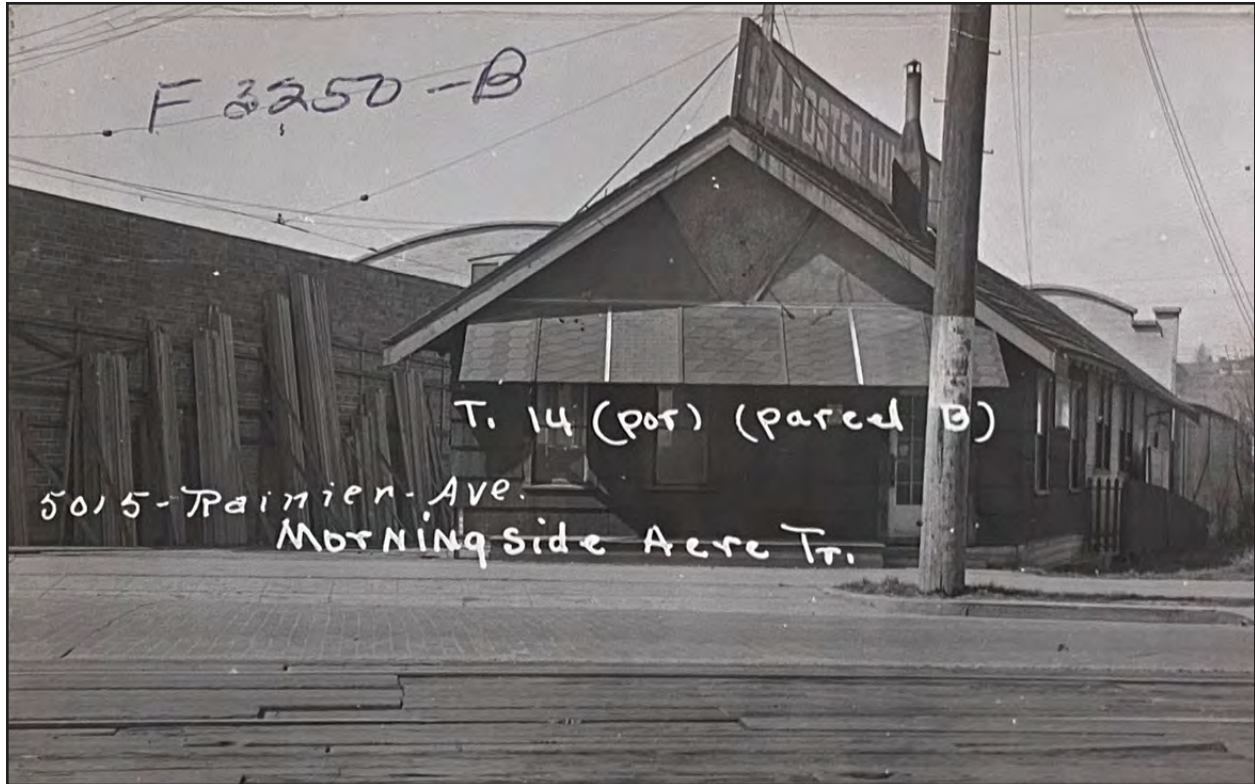 F 3250-B
A. FOSTER
T. 14 (por) (parcel B)
5015-Rainier-Ave.
Morningside Acre Tr.